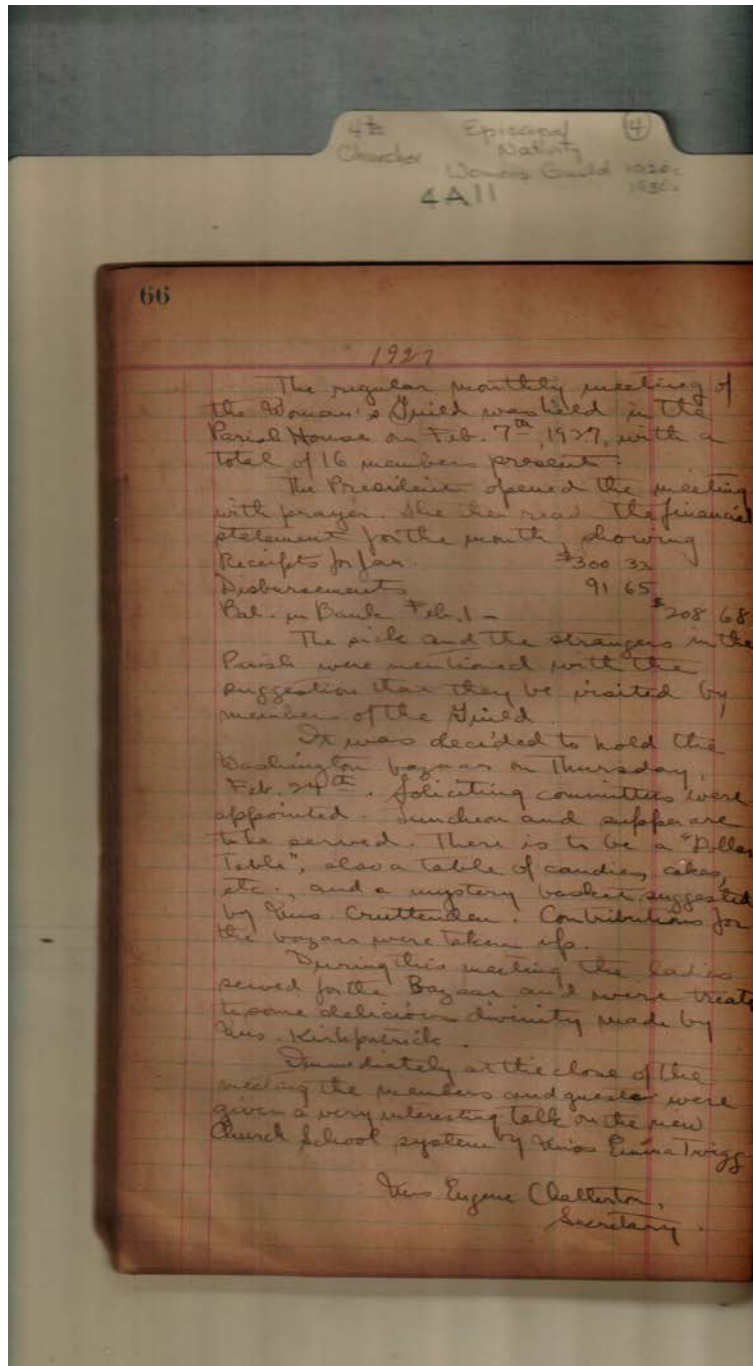 4th Episcopal ④
Churches Nativity
Womens Guild 1920s
1930s
4A11
66
1927
The regular monthly meeting of
the Woman's Guild was held in the
Parish House on Feb. 7th, 1927, with a
total of 16 members present.
The President opened the meeting
with prayer. She then read the financial
statement for the month, showing
Receipts for Jan. $300 33
Disbursements 91 65
Bal. in Bank Feb. 1 - $208 68
The sick and the strangers in the
Parish were mentioned with the
suggestion that they be visited by
members of the Guild.
It was decided to hold the
Washington bazaar on Thursday,
Feb. 24th. Soliciting committees were
appointed. Luncheon and supper are
to be served. There is to be a "Dollar
Table", also a table of candies, cakes,
etc., and a mystery basket suggested
by Mrs. Cruttenden. Contributions for
the bazaar were taken up.
During this meeting the ladies
sewed for the Bazaar and were treated
to some delicious divinity made by
Mrs. Kirkpatrick.
Immediately at the close of the
meeting the members and guests were
given a very interesting talk on the new
Church School system by Miss Emma Twigg
Mrs Eugene Chatterton,
Secretary.